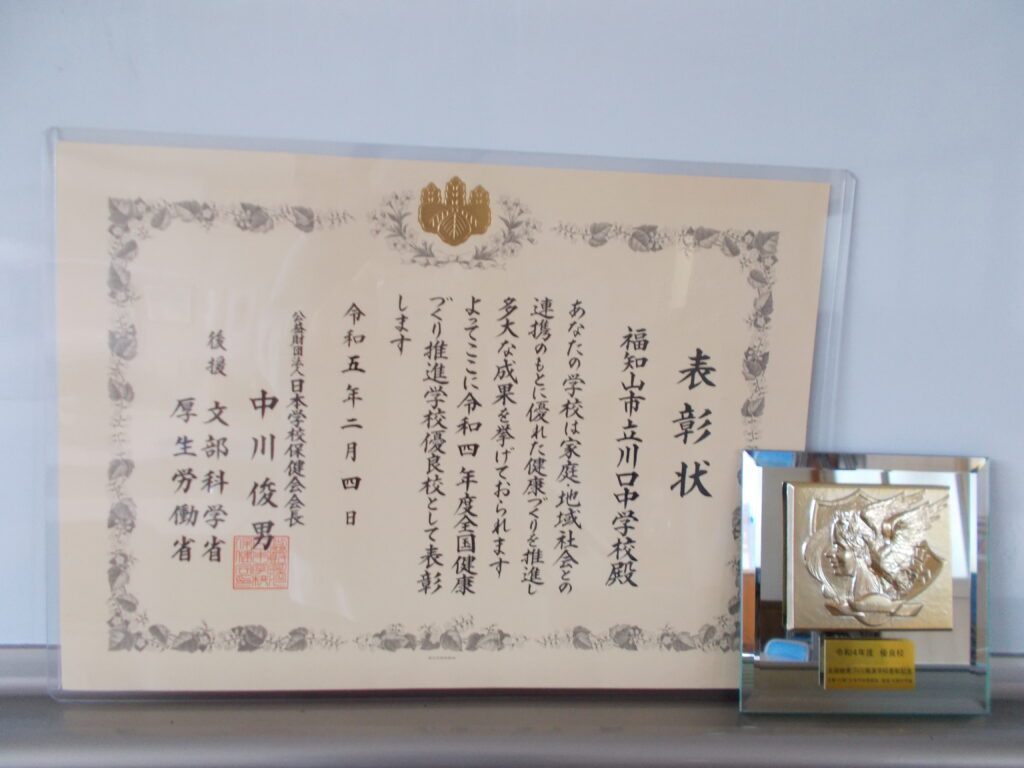 表彰状
福知山市立川口中学校殿
あなたの学校は家庭地域社会との
連携のもとに優れた健康づくりを推進し
多大な成果を挙げておられます
よってここに令和四年度全国健康
づくり推進学校優良校として表彰
します
令和五年二月四日
公益財団法人日本学校保健会会長
中川俊男
後援 文部科学省
厚生労働省
令和4年度 優良校